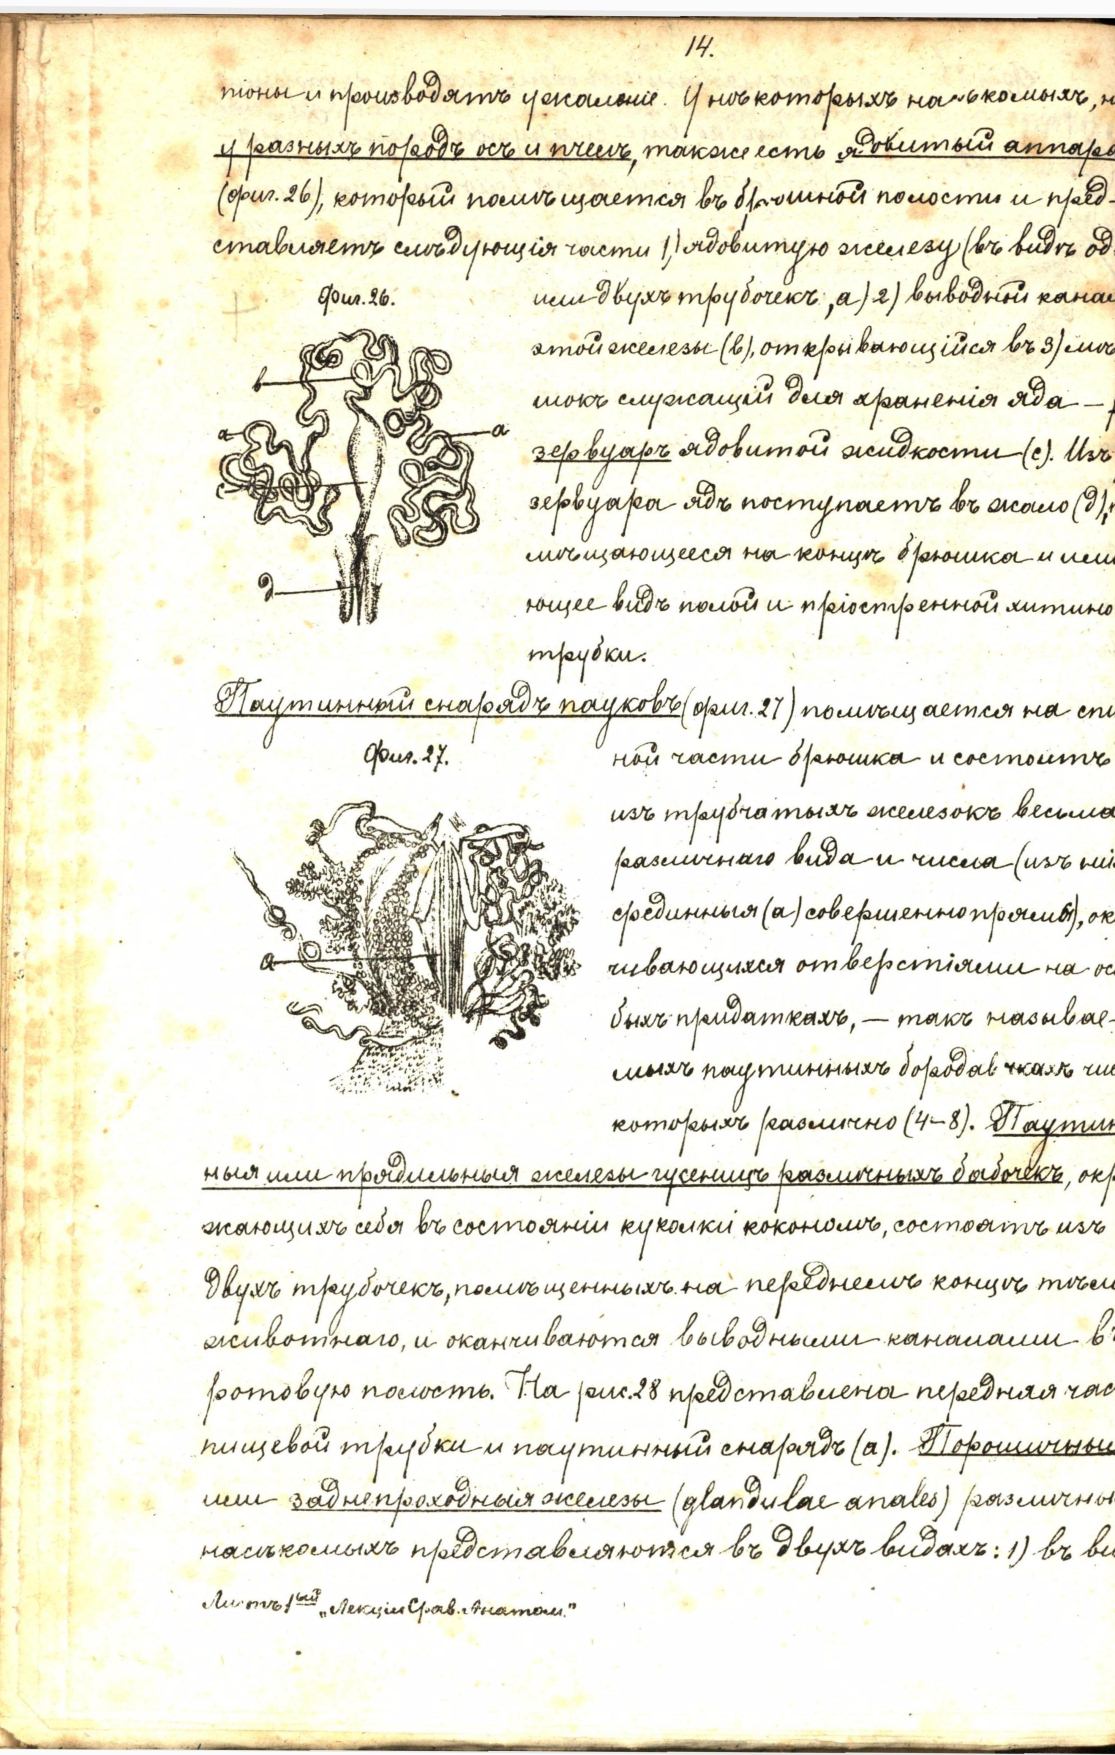 14.
піоны и производятъ ужаленіе. У нѣкоторыхъ насѣкомыхъ, н
у разныхъ породъ осъ и пчелъ, также есть ядовитый аппара
(фиг. 26), который помѣщается въ брюшной полости и пред-
ставляетъ слѣдующія части 1) ядовитую железу (въ видѣ од
Фиг. 26.
или двухъ трубочекъ, а) 2) выводной кана
этой железы (в), открывающійся въ 3) мѣ
шокъ служащій для храненія яда —
зервуаръ ядовитой жидкости (с). Изъ
зервуара ядъ поступаетъ въ жало (д),
мѣщающееся на концѣ брюшка и имѣ
ющее видъ полой и пріостренной хитино
трубки.
в
а
а
д
Паутинный снарядъ пауковъ (фиг. 27) помѣщается на спи
Фиг. 27.
ной части брюшка и состоитъ
изъ трубчатыхъ железокъ весьма
различнаго вида и числа (изъ них
срединныя (а) совершенно прямы), ок
чивающихся отверстіями на ос
быхъ придаткахъ, — такъ называе-
мыхъ паутинныхъ бородавчкахъ чис
которыхъ различно (4–8). Паутин
а
ныя или прядильныя железы гусеницъ различныхъ бабочекъ, окр
жающихъ себя въ состояніи куколки кокономъ, состоятъ изъ
двухъ трубочекъ, помѣщенныхъ на переднемъ концѣ тѣла
животнаго, и оканчиваются выводными каналами въ
ротовую полость. На рис. 28 представлена передняя час
пищевой трубки и паутинный снарядъ (а). Порошичныя
или заднепроходныя железы (glandulae anales) различны
насѣкомыхъ представляются въ двухъ видахъ: 1) въ ви
Листъ 1ый „Лекціи Срав. Анатом."